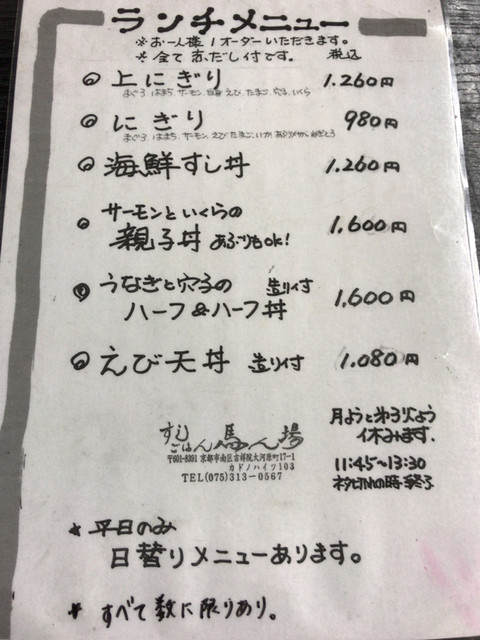 ランチメニュー
※お一人様1オーダーいただきます。
※全て赤だし付です。 税込
◎ 上にぎり 1.260円
まぐろ、はまち、サーモン、白身、えび、たまご、穴子、いくら
◎ にぎり 980円
まぐろ、はまち、サーモン、えび、たまご、いか
◎ 海鮮すし丼 1.260円
◎ サーモンといくらの
親子丼 あぶりもOK! 1.600円
◎ うなぎと穴子の 造り付
ハーフ&ハーフ丼 1.600円
◎ えび天丼 造り付 1.080円
すし
ごはん 馬場
〒601-8391 京都市南区吉祥院大河原町17-1
カドノハイツ103
TEL(075)313-0567
月ようと第3火よう
休みます.
11:45~13:30
ネタ切れの時、終了
★ 平日のみ
日替りメニューあります。
★ すべて数に限りあり。